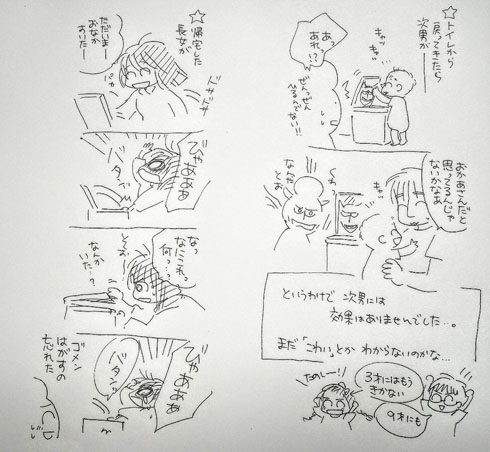 ☆トイレから
戻ってきたら
次男が
キャッ
キャッ
あっ
あれ!?
ぜんっぜん
ぶるんでない!!
おかあさんだと
思ってるんじゃ
ないかなぁ
キャッ
なんだ
とぉ
というわけで 次男には
効果はありませんでした…。
まだ「こわい」とか わからないのかな…
ためしー!!
3才にはもう
きかない
9才にも
☆帰宅した
長女が
ただいまー
おなか
すいたー
パカッ
びゃ
あああ
バタンッ
なっ
なにこれっ
何っ…?
そぉ…
なんか
いた…?
びゃ
あああ
バタンッ
ゴメン
はがすの
忘れた